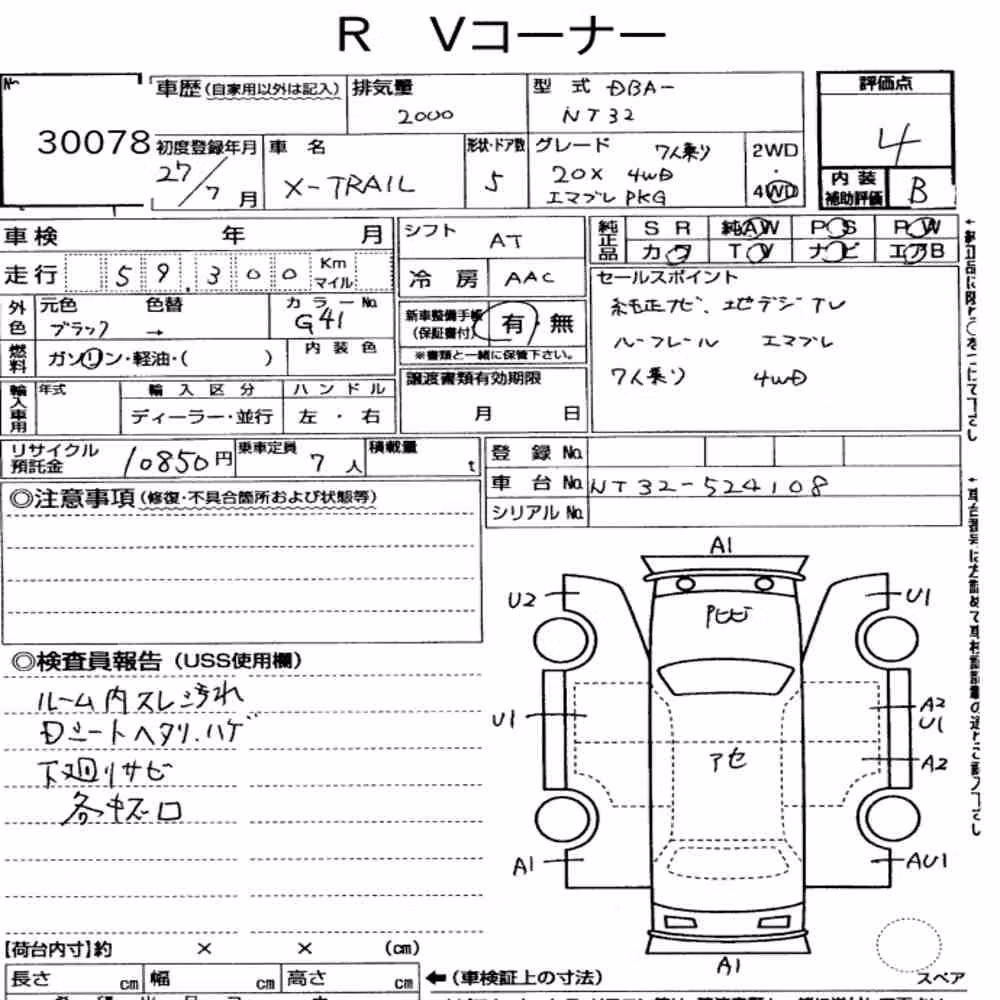 R Vコーナー
No
30078
車歴(自家用以外は記入) 排気量 2000
型式 DBA-
NT32
評価点
4
初度登録年月 27/7月
車名 X-TRAIL
形状・ドア数 5
グレード 7人乗り
20X 4WD
エマブレ PKG
2WD
・
4WD
内装
補助評価 B
車検 年 月
走行 59,300 Km
マイル
シフト AT
冷房 AAC
純正品
SR 純AW PS PW
カワ TV ナビ エアB
外色
元色 色替 カラーNo.
ブラック → G41
燃料
ガソリン・軽油・( )
内装色
新車整備手帳
(保証書付) 有・無
※書類と一緒に保管下さい。
セールスポイント
純正ナビ、地デジTV
ルーフレール エマブレ
7人乗り 4WD
輸入車用
年式 輸入区分 ハンドル
ディーラー・並行 左・右
譲渡書類有効期限
月 日
リサイクル
預託金 10850円
乗車定員 7人
積載量 t
登録No.
車台No. NT32-524108
シリアルNo.
◎注意事項(修復・不具合箇所および状態等)
◎検査員報告(USS使用欄)
ルーム内スレ汚れ
Dシートヘタリ、ハゲ
下廻リサビ
各キズ凹
A1
U2
U1
アセ
U1
A2
U1
A2
アセ
A1
AU1
A1
スペア
【荷台内寸】約 × × (cm)
長さ cm 幅 cm 高さ cm
←(車検証上の寸法)